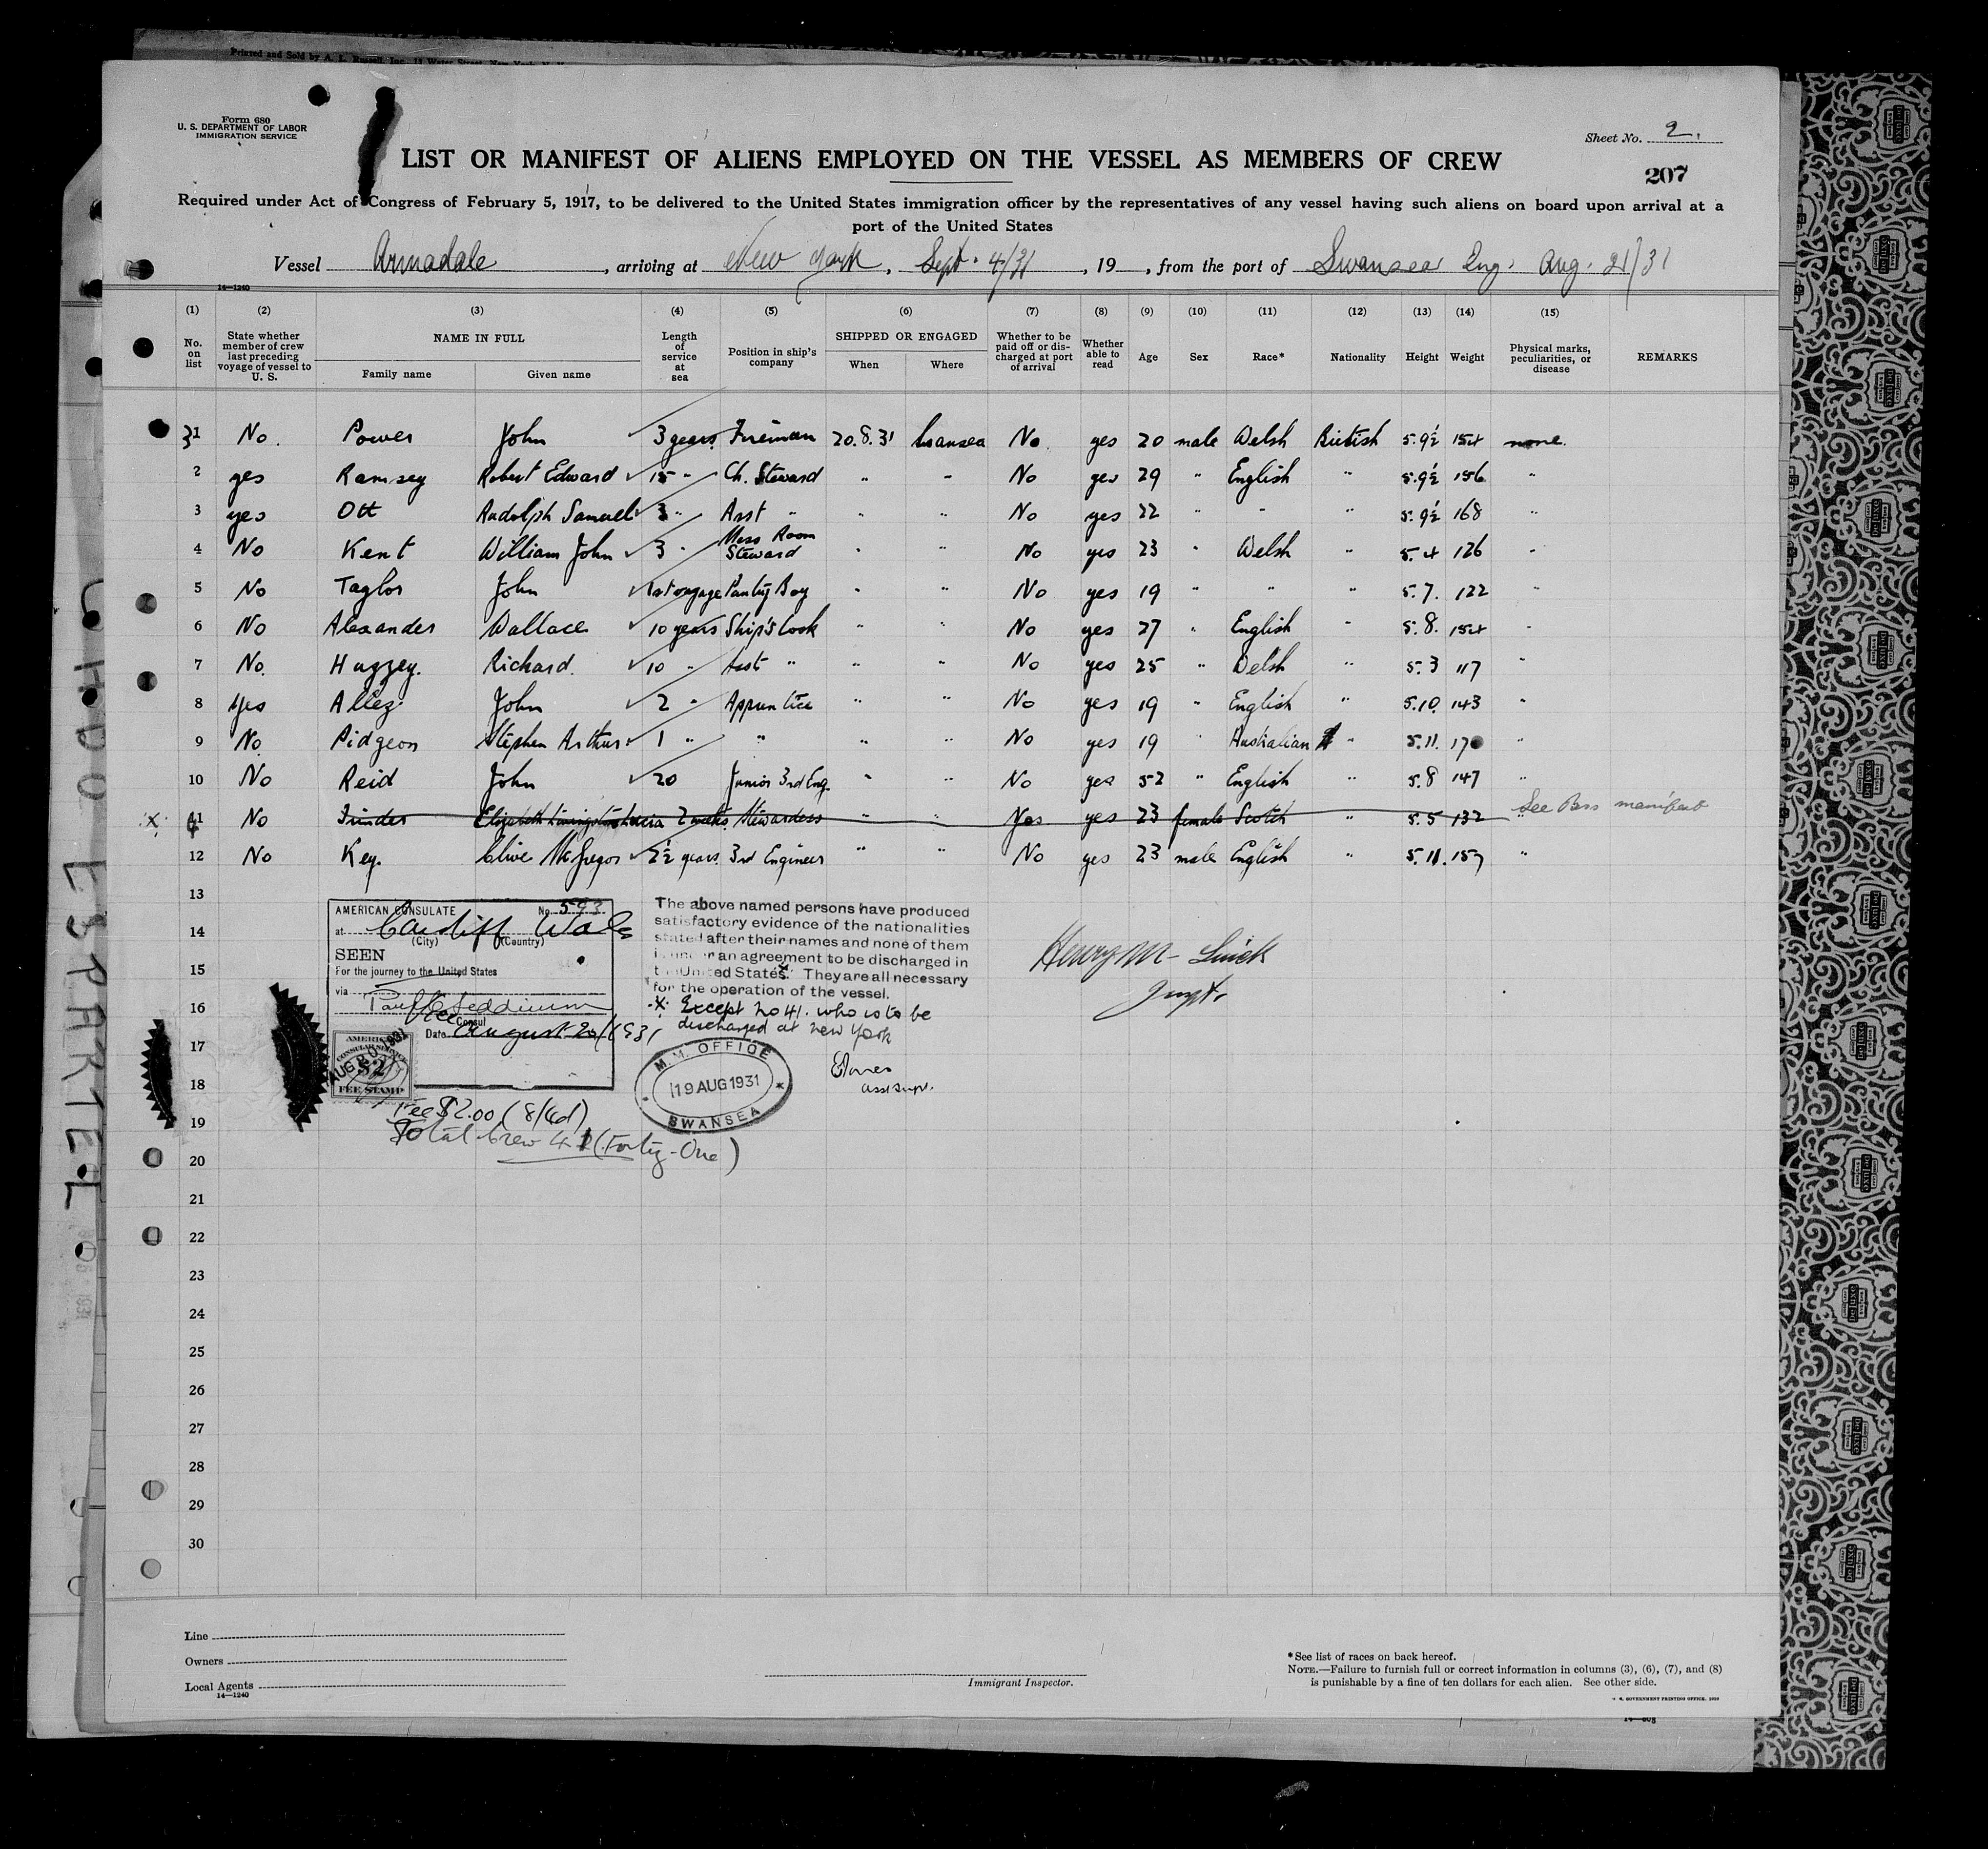 Printed and Sold by A. L. Russell, Inc., 14 Water Street, New York, N. Y.
Form 680
U. S. DEPARTMENT OF LABOR
IMMIGRATION SERVICE
Sheet No. 2.
LIST OR MANIFEST OF ALIENS EMPLOYED ON THE VESSEL AS MEMBERS OF CREW
207
Required under Act of Congress of February 5, 1917, to be delivered to the United States immigration officer by the representatives of any vessel having such aliens on board upon arrival at a
port of the United States
Vessel Armadale, arriving at New York, Sept. 4/31, 19 , from the port of Swansea Eng. Aug. 21/31
14—1240
(1) (2) (3) (4) (5) (6) (7) (8) (9) (10) (11) (12) (13) (14) (15)
No. on list State whether member of crew last preceding voyage of vessel to U. S. NAME IN FULL Family name Given name Length of service at sea Position in ship's company SHIPPED OR ENGAGED When Where Whether to be paid off or discharged at port of arrival Whether able to read Age Sex Race* Nationality Height Weight Physical marks, peculiarities, or disease REMARKS
31 No. Power John 3 years Fireman 20.8.31 Swansea No. yes 20 male Welsh British 5.9½ 154 none.
2 yes Ramsey Robert Edward 15 " Ch. Steward " " No yes 29 " English " 5.9½ 156 "
3 yes Ott Rudolph Samuel 3 " Asst " " " No yes 22 " " " 5.9½ 168 "
4 No Kent William John 3 " Mess Room Steward " " No yes 23 " Welsh " 5.4 126 "
5 No Taylor John 1st voyage Pantry Boy " " No yes 19 " " " 5.7. 122 "
6 No Alexander Wallace 10 years Ship's Cook " " No yes 27 " English " 5.8. 154 "
7 No. Huzzey. Richard. 10 " Asst " " " No yes 25 " Welsh " 5.3 117 "
8 Yes Allez John 2 " Apprentice " " No yes 19 " English " 5.10. 143 "
9 No. Pidgeon Stephen Arthur 1 " " " " No yes 19 " Australian " 5.11. 170 "
10 No Reid John 20 Junior 3rd Eng. " " No yes 52 " English " 5.8 147 "
x 41 No Elizabeth 2 weeks Stewardess " " Yes yes 23 female Scotch " 5.5 132 " See Pass manifest
12 No Key. Clive McGregor 2½ years 3rd Engineer " " No yes 23 male English " 5.11. 157 "
13
14
15
16
17
18
19
20
21
22
23
24
25
26
27
28
29
30
AMERICAN CONSULATE No. 593
at Cardiff Wales
(City) (Country)
SEEN
For the journey to the United States
via
Vice Consul
Date August 20/1931
AMERICAN
CONSULAR SERVICE
$2
FEE STAMP
AUG 20 1931
Fee $2.00 (8/4d)
Total Crew 41 (Forty-One)
The above named persons have produced
satisfactory evidence of the nationalities
stated after their names and none of them
is under an agreement to be discharged in
the United States. They are all necessary
for the operation of the vessel.
x. Except No 41. who is to be
discharged at New York
M.M. OFFICE
19 AUG 1931
SWANSEA
Asst Supt.
Henry M.
Inspt.
CHODO ESPARTEL
Line
Owners
Local Agents
14—1240
Immigrant Inspector.
*See list of races on back hereof.
NOTE.—Failure to furnish full or correct information in columns (3), (6), (7), and (8)
is punishable by a fine of ten dollars for each alien. See other side.